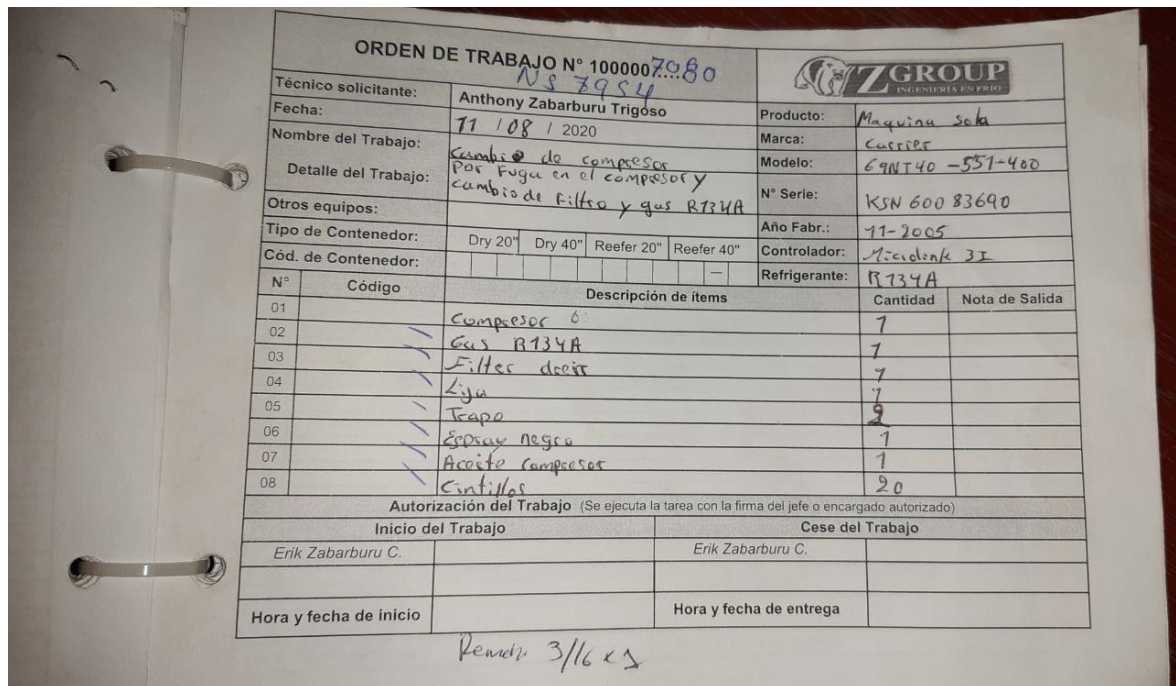 ORDEN DE TRABAJO N° 1000007080
NS 7954
ZGROUP
INGENIERÍA EN FRÍO
Técnico solicitante: Anthony Zabarburu Trigoso
Fecha: 11 / 08 / 2020
Nombre del Trabajo: Cambio de compresor
Detalle del Trabajo: Por Fuga en el compresor y
cambio de Filtro y gas R134A
Otros equipos:
Tipo de Contenedor: Dry 20" Dry 40" Reefer 20" Reefer 40"
Cód. de Contenedor: –
Producto: Maquina Sola
Marca: Carrier
Modelo: 69NT40-551-400
N° Serie: KSN 600 83690
Año Fabr.: 11-2005
Controlador: Miculink 3I
Refrigerante: R134A
N° Código Descripción de ítems Cantidad Nota de Salida
01 Compresor 1
02 Gas R134A 1
03 Filter dreir 1
04 Lija 1
05 Trapo 2
06 Espray negro 1
07 Aceite compresor 1
08 Cintillos 20
Autorización del Trabajo (Se ejecuta la tarea con la firma del jefe o encargado autorizado)
Inicio del Trabajo Cese del Trabajo
Erik Zabarburu C. Erik Zabarburu C.
Hora y fecha de inicio Hora y fecha de entrega
3/16 x 1